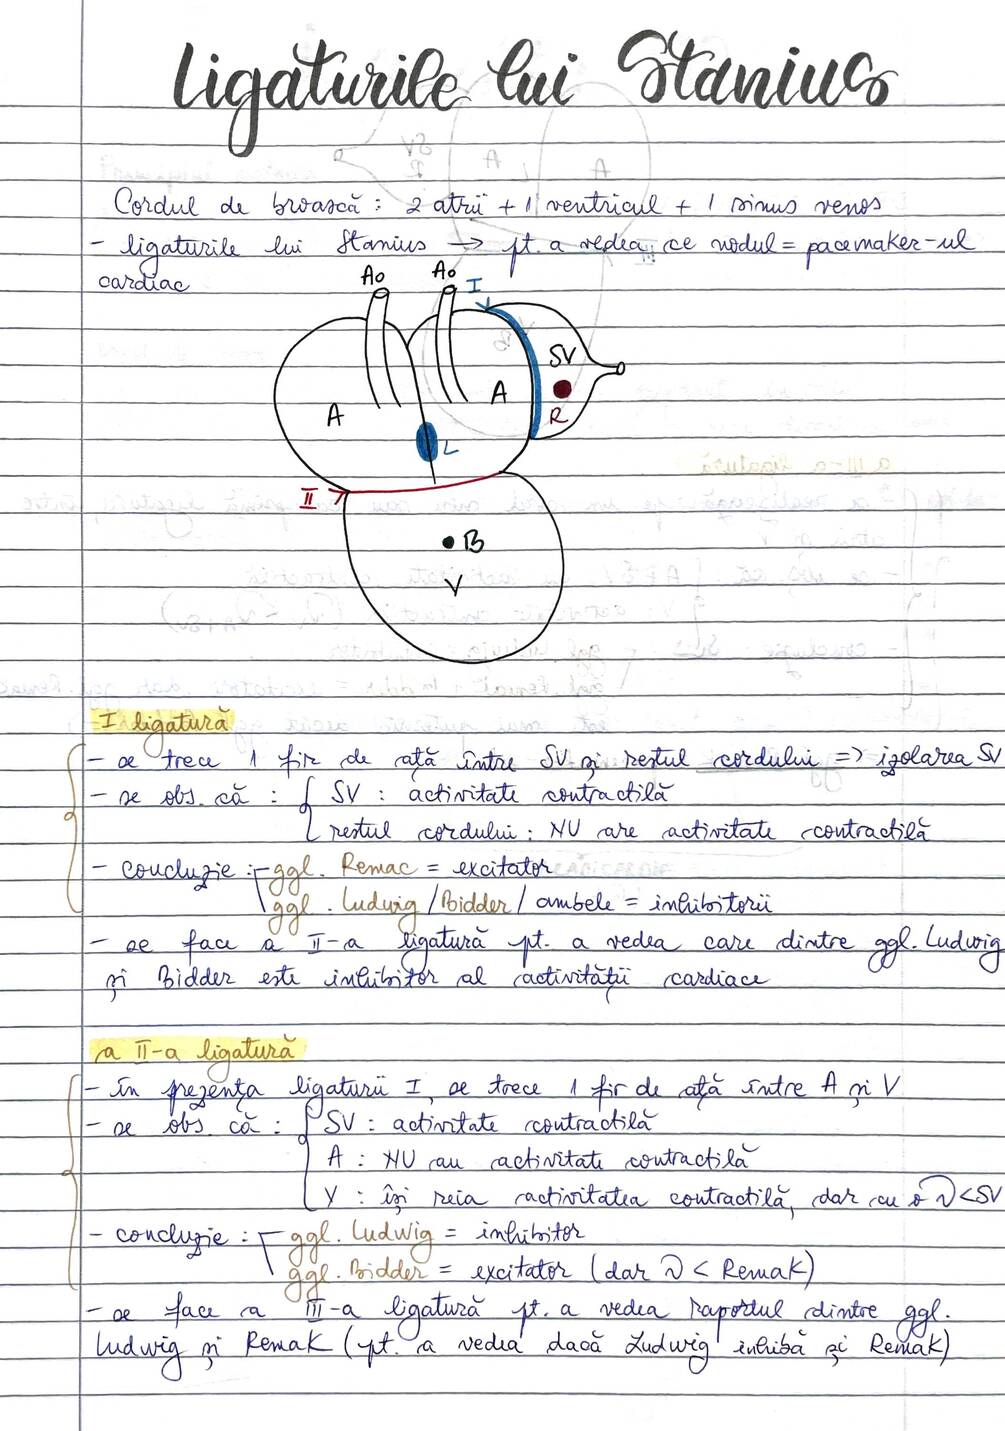 Ligaturile lui Stanius
Cordul de broască : 2 atrii + 1 ventricul + 1 sinus venos
- ligaturile lui Stanius → pt. a vedea ce nodul = pacemaker-ul
cardiac
Ao Ao I
SV
A A
R
L
II
B
V
I ligatură
- se trece 1 fir de ață între SV și restul cordului => izolarea SV
- se obs. că : SV : activitate contractilă
restul cordului : NU are activitate contractilă
- concluzie : ggl. Remac = excitator
ggl. Ludwig / Bidder / ambele = inhibitorii
- se face a II-a ligatură pt. a vedea care dintre ggl. Ludwig
și Bidder este inhibitor al activității cardiace
a II-a ligatură
- în prezența ligaturii I, se trece 1 fir de ață între A și V
- se obs. că : SV : activitate contractilă
A : NU au activitate contractilă
V : își reia activitatea contractilă, dar cu o ν < SV
- concluzie : ggl. Ludwig = inhibitor
ggl. Bidder = excitator (dar ν < Remak)
- se face a III-a ligatură pt. a vedea raportul dintre ggl.
Ludwig și Remak (pt. a vedea dacă Ludwig inhibă și Remak)